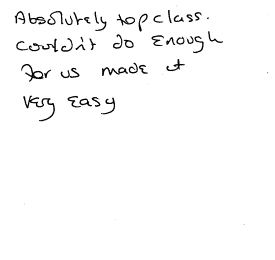 Absolutely top class.
Couldn't do Enough
for us made it
very Easy